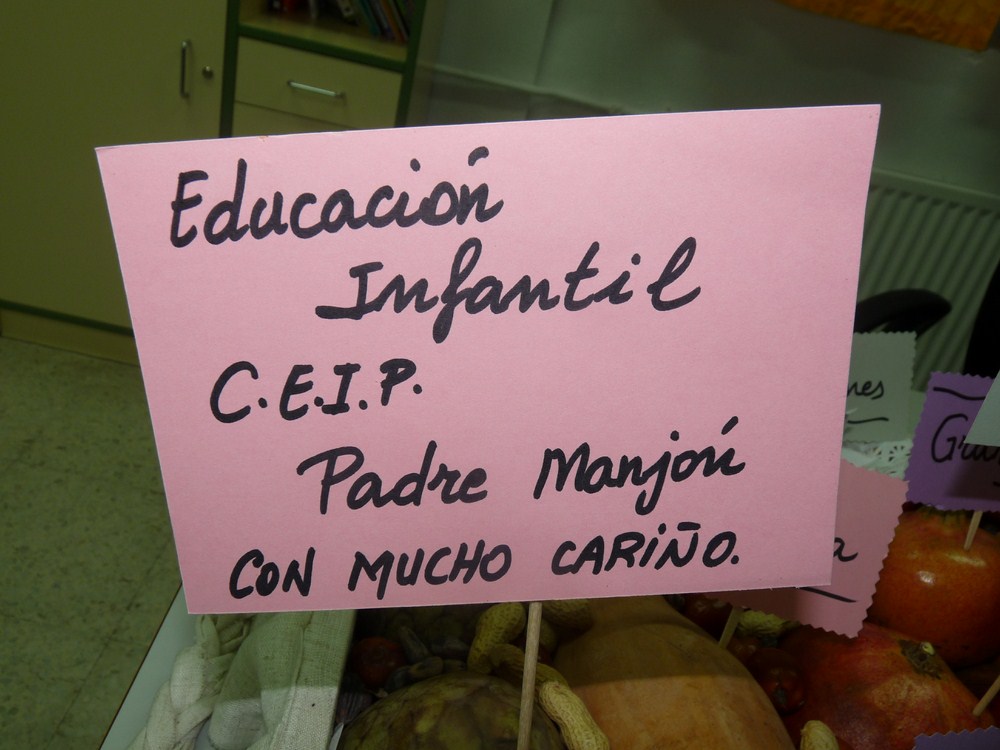 Educación
Infantil
C.E.I.P.
Padre Manjón
CON MUCHO CARIÑO.